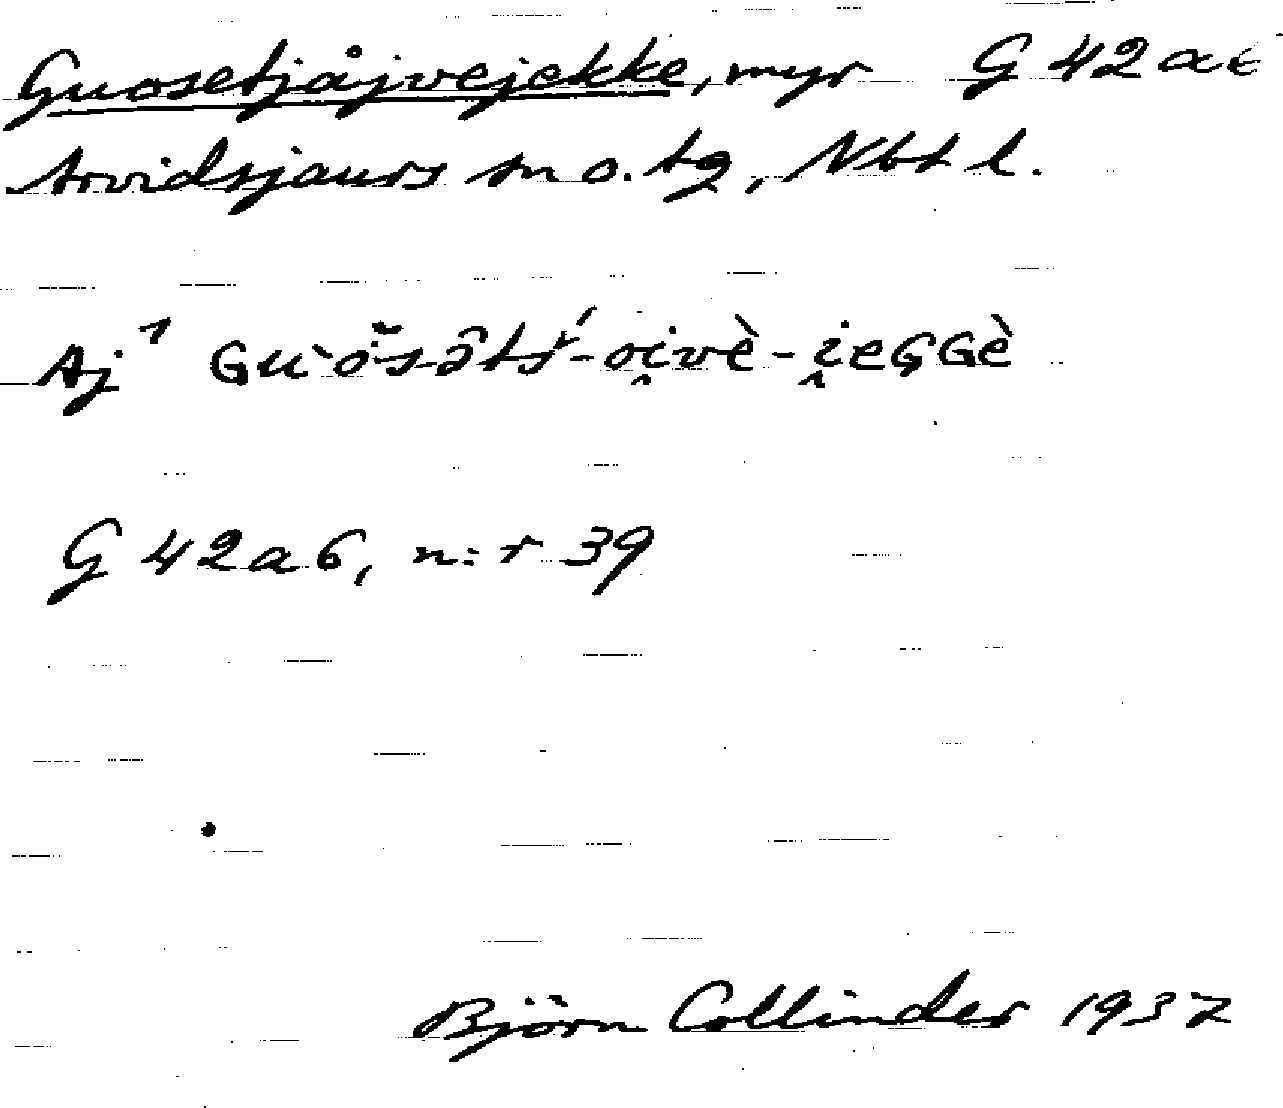 Guosetjåjvejekke, myr G 42 a 6
Arvidsjaurs sn o. tg, Nbt l.
Aj¹ Guo̍sə̑tś-oi̯vè-i̯eGGè
G 42 a 6, n:r 39
Björn Collinder 1937